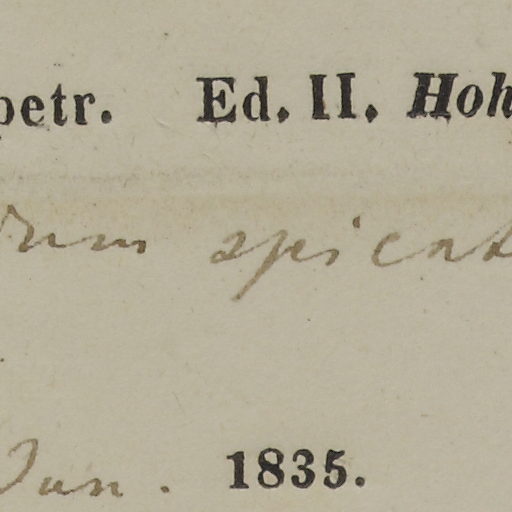 petr. Ed. II. Hoh
rum spicat
Jun. 1835.